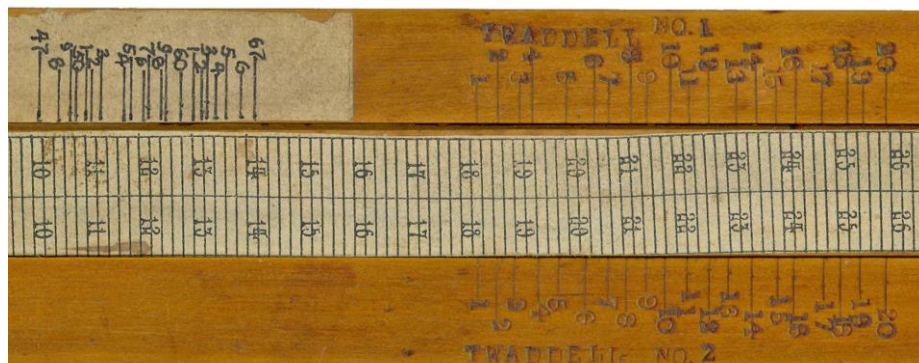 TWADDELL NO.1
47 8 9 50 1 2 5 4 6 7 8 9 60 1 2 3 4 5 6 67
1 2 3 4 5 6 7 8 9 10 11 12 13 14 15 16 17 18 19 20
10 11 12 13 14 15 16 17 18 19 20 21 22 23 24 25 26
10 11 12 13 14 15 16 17 18 19 20 21 22 23 24 25 26
1 2 3 4 5 6 7 8 9 10 11 12 13 14 15 16 17 18 19 20
TWADDELL NO.2